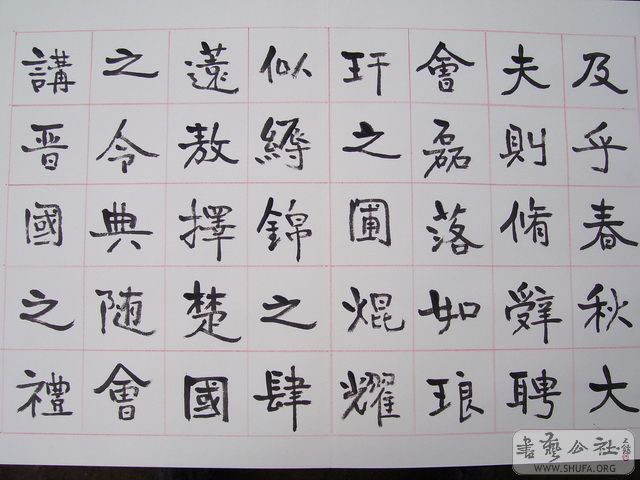 及乎春秋大
夫則脩辭聘
會磊落如琅
玕之圃焜耀
似縟錦之肆
薳敖擇楚國
之令典随會
講晋國之禮
書藝公社
WWW.SHUFA.ORG